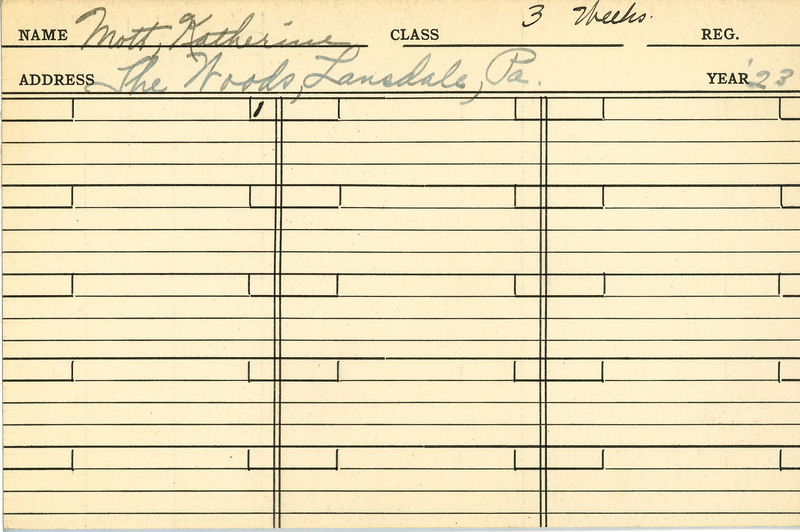 NAME Mott, Katherine CLASS 3 Weeks. REG.
ADDRESS The Woods, Lansdale, Pa. YEAR '23
1